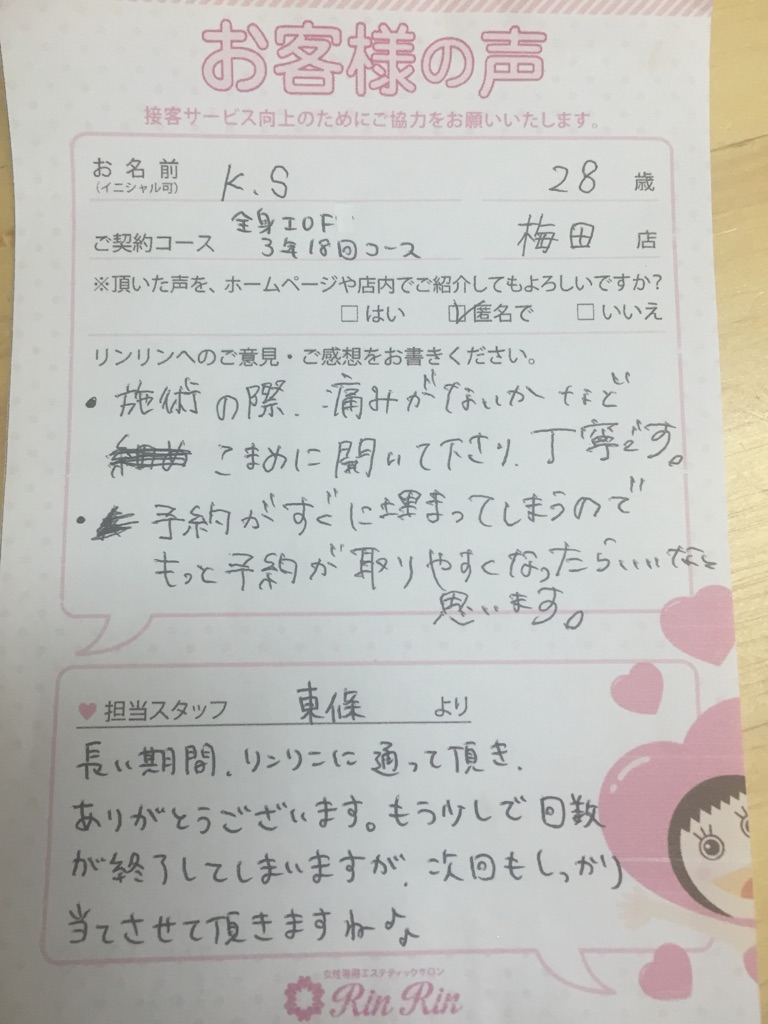 お客様の声
接客サービス向上のためにご協力をお願いいたします。
お名前 K.S 28 歳
(イニシャル可)
全身IOF
ご契約コース 3年18回コース 梅田 店
※頂いた声を、ホームページや店内でご紹介してもよろしいですか?
□はい ☑匿名で □いいえ
リンリンへのご意見・ご感想をお書きください。
• 施術の際、痛みがないかなど
こまめに聞いて下さり、丁寧です。
• 予約がすぐに埋まってしまうので
もっと予約が取りやすくなったらいいなと
思います。
♥担当スタッフ 東條 より
長い期間、リンリンに通って頂き、
ありがとうございます。もう少しで回数
が終了してしまいますが、次回もしっかり
当てさせて頂きますね♪
女性専用エステティックサロン
Rin Rin